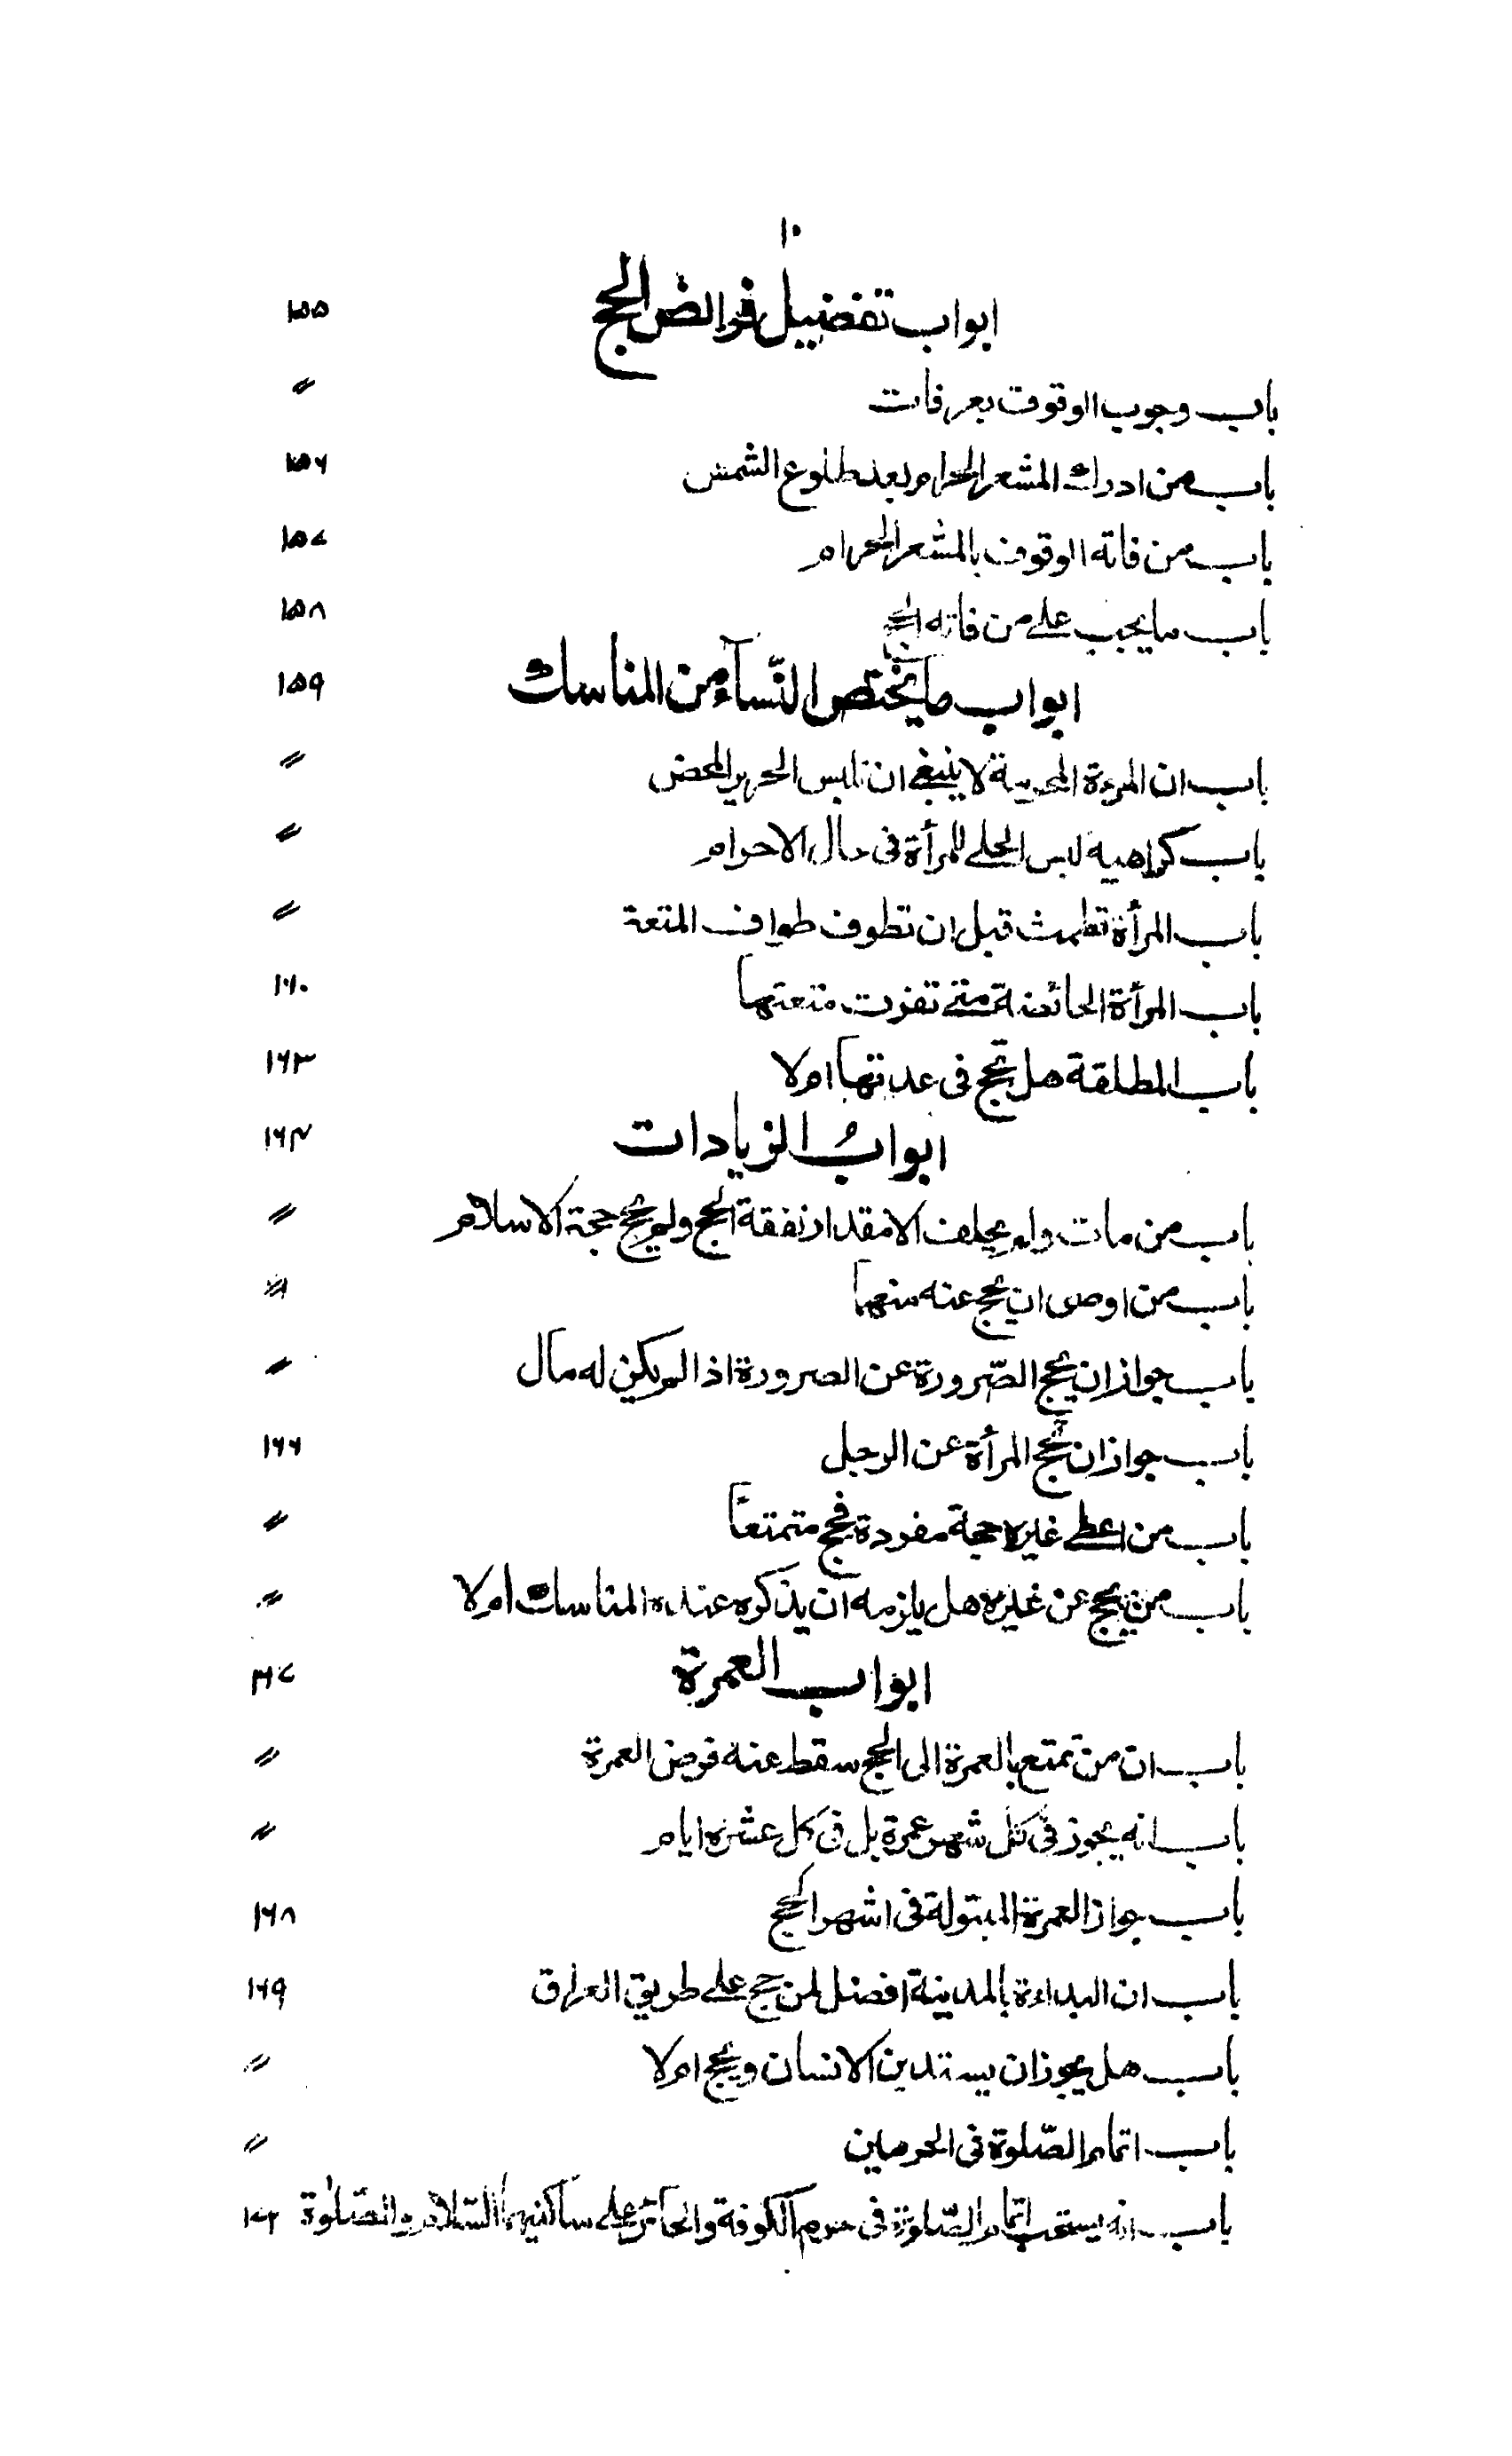 ١٠
ابواب تفضيل فرائض الحج ١٥٥
باب وجوب الوقوف بعرفات 〃
باب من ادرك المشعر الحرام بعد طلوع الشمس ١٥٦
باب من فاته الوقوف بالمشعر الحرام ١٥٧
باب ما يجب على من فاته الحج ١٥٨
ابواب ما يختص النّسآء من المناسك ١٥٩
باب ان المرءة المحرمة لا ينبغى ان تلبس الحرير المحض 〃
باب كراهية لبس الحلى للمرأة فى حال الاحرام 〃
باب المرأة تطمث قبل ان تطوف طواف المتعة 〃
باب المرأة الحائضة متى تفوت متعتها ١٦٠
باب المطلقة هل تحج فى عدتها ام لا ١٦٣
ابوابُ الزيادات ١٦٤
باب من مات ولم يخلف الا مقدار نفقة الحج ولم يحج حجة الاسلام 〃
باب من اوصى ان يحج عنه مبهما 〃
باب جواز ان يحج الصّرورة عن الصرورة اذا لم يكن له مال 〃
باب جواز ان تحج المرأة عن الرجل ١٦٦
باب من اعطى غيره حجة مفردة فحج متمتعاً 〃
باب من يحج عن غيره هل يلزمه ان يذكره عند المناسك ام لا 〃
ابواب العمرة ١٦٧
باب ان من تمتع بالعمرة الى الحج سقط عنه فرض العمرة 〃
باب انه يجوز فى كل شهر عمرة بل فى كل عشرة ايام 〃
باب جواز العمرة المبتولة فى اشهر الحج ١٦٨
باب ان البداءة بالمدينة افضل لمن حج على طريق العراق ١٦٩
باب هل يجوز ان يستدين الانسان ويحج ام لا 〃
باب اتمام الصّلوة فى الحرمين 〃
باب انه يستحب اتمام الصّلوة فى حرم الكوفة والحآئر على ساكنيهما السّلام والصّلوٰة ١٧٢